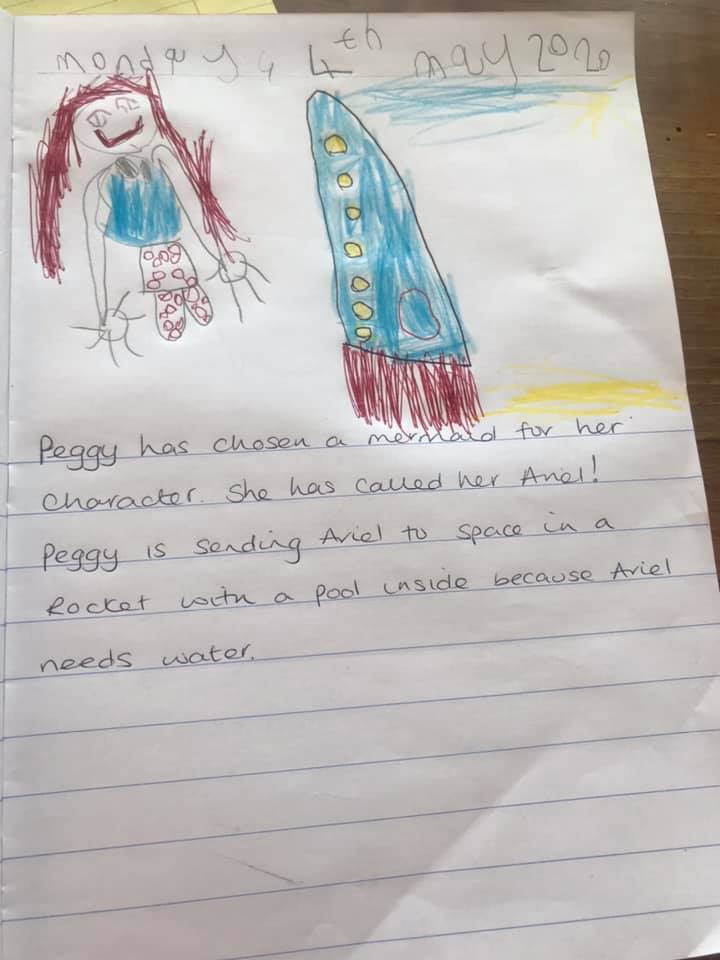 Monday 4th may 2020
Peggy has chosen a mermaid for her
character. She has called her Ariel!
Peggy is sending Ariel to space in a
Rocket with a pool inside because Ariel
needs water.